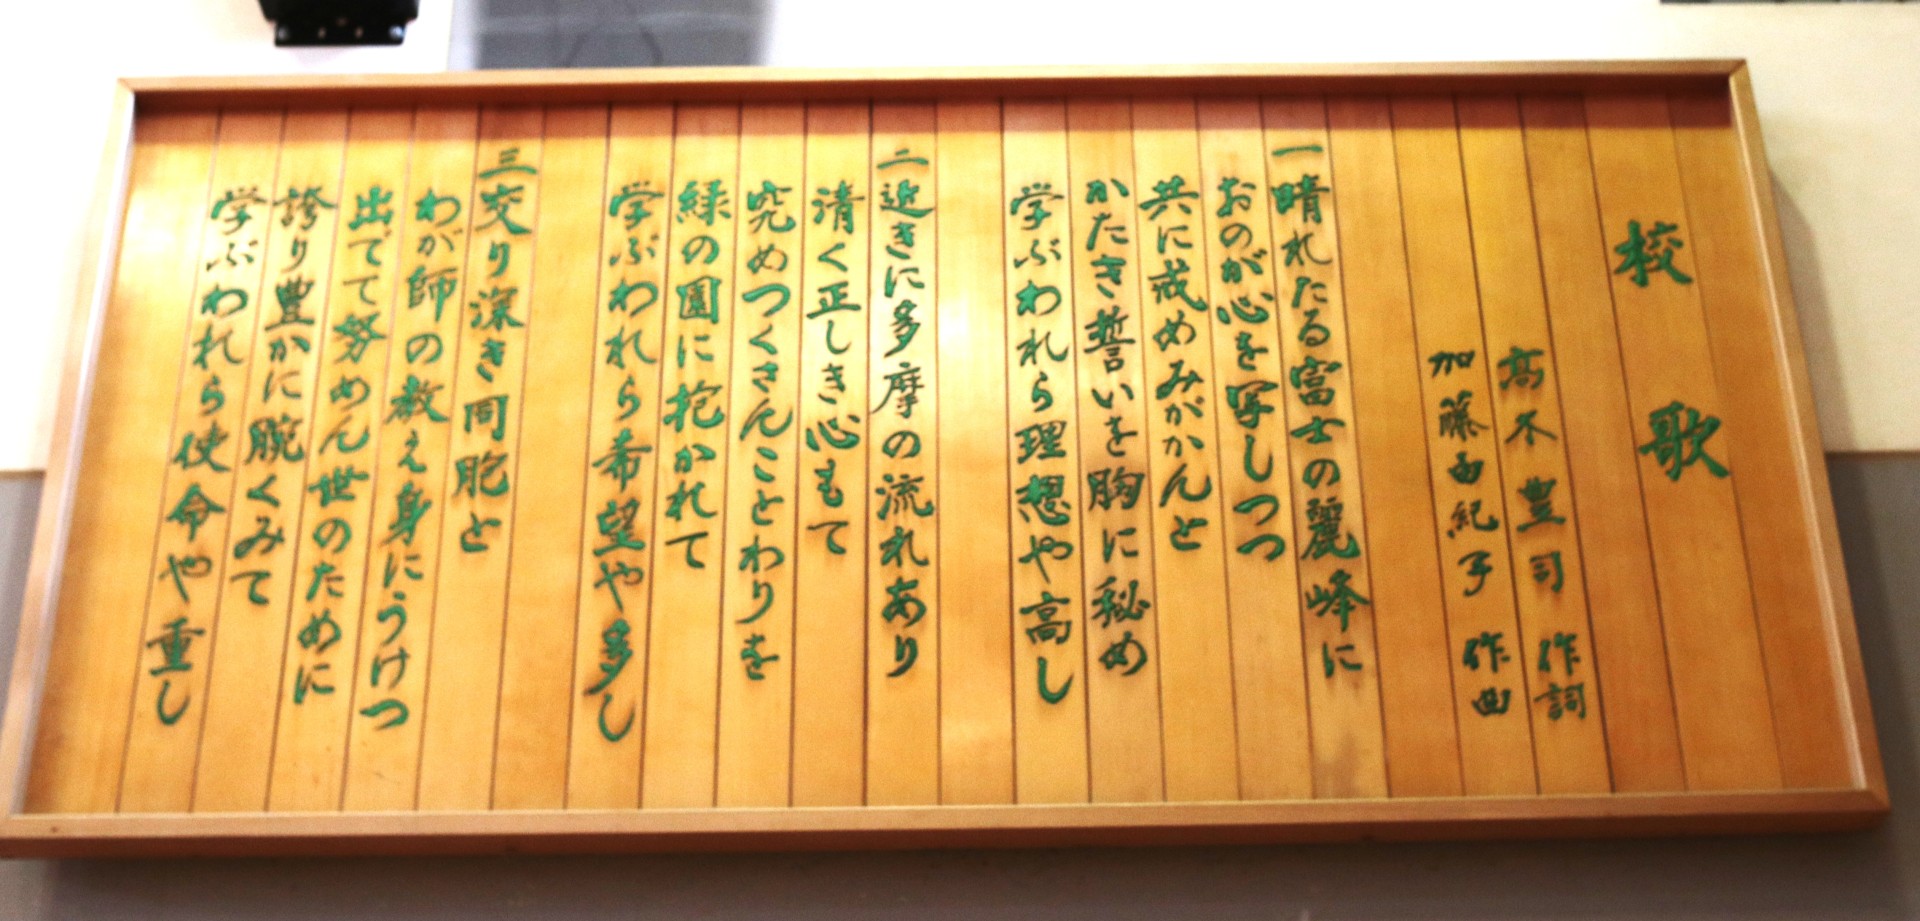 校歌
高木豊司 作詞
加藤由紀子 作曲
一 晴れたる富士の麗峰に
おのが心を写しつつ
共に戒めみがかんと
かたき誓いを胸に秘め
学ぶわれら理想や高し
二 近きに多摩の流れあり
清く正しき心もて
究めつくさんことわりを
緑の園に抱かれて
学ぶわれら希望や多し
三 交り深き同胞と
わが師の教え身にうけつ
出でて努めん世のために
誇り豊かに腕くみて
学ぶわれら使命や重し